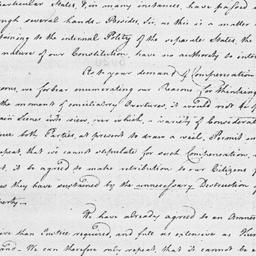 articular States, & in many instances, have passed
ough several hands. Besides, Sir, as this is a matter
taining to the internal Polity of the separate States the
nature of our Constitution, have no authority to inter
As to your demand of Compensation
sons, we forbear enumerating our Reasons for thinking
the moment of conciliatory Overtures, it would not be
tain Scenes into view, over which, a variety of Considerat
uce both Parties at present to draw a veil. Permit
repeat, that we cannot stipulate for such Compensation,
t, it be agreed to make retribution to our Citizens
es they have sustained by the unnecessary Destruction
operty.
We have already agreed to an Amnes
ore than Justice required, and full as extensive as
and. We can therefore only repeat, that it cannot be